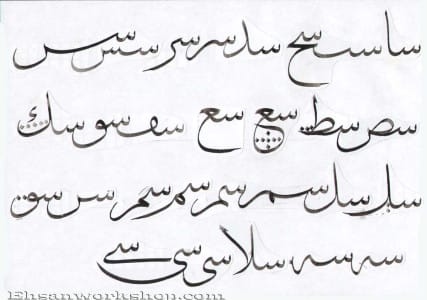 سا سح سد سر سر سس
سص سط سع سع سف سو سك
سل سل سم سم سم سم سس سو
سه سه سلا سى سى سے
Ehsanworkshop.com